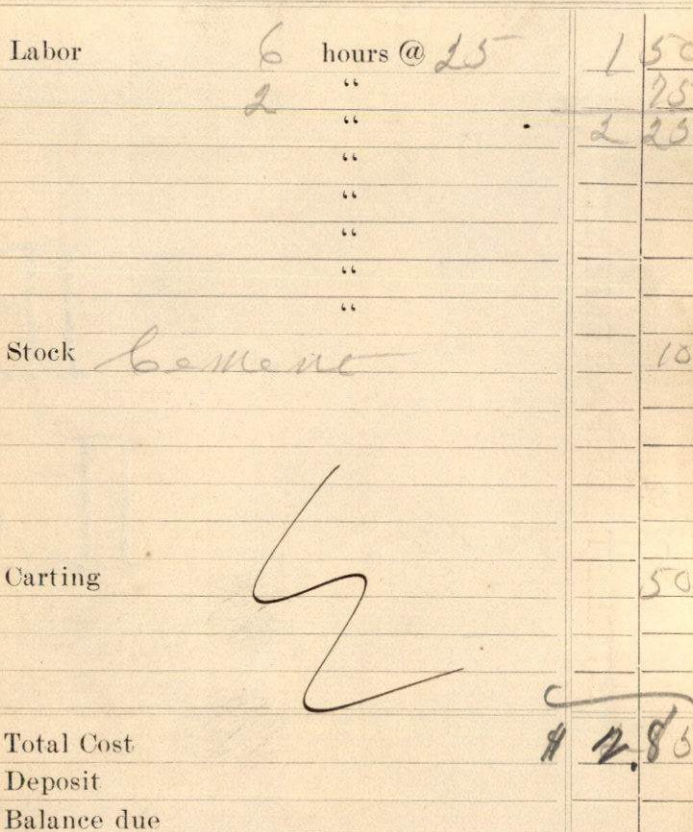 Labor 6 hours @ 25 1 50
2 " 75
" 2 25
"
"
"
"
"
Stock Cement 10
Carting 50
Total Cost $ 2.85
Deposit
Balance due